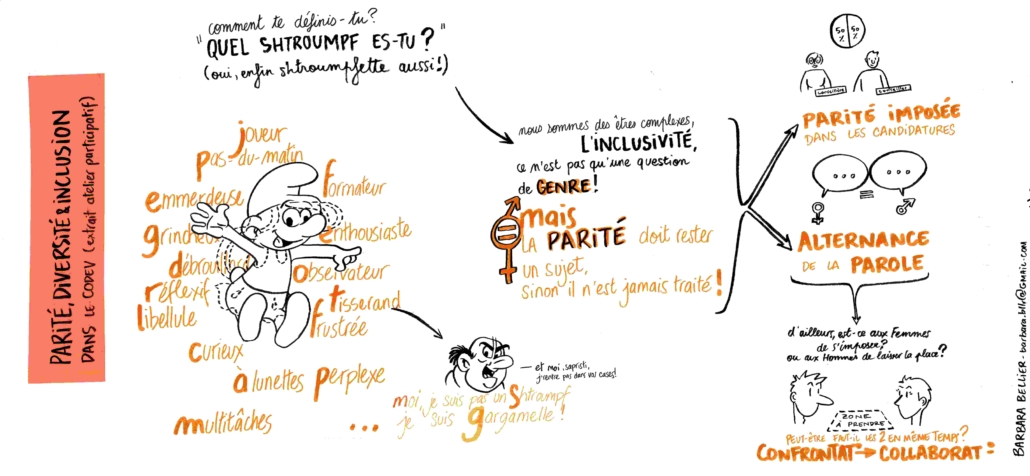 PARITÉ, DIVERSITÉ & INCLUSION
DANS LE CODEV (extrait atelier participatif)
comment te définis-tu?
"QUEL SHTROUMPF ES-TU?"
(oui, enfin shtroumpfette aussi!)
joueur
pas-du-matin
emmerdeuse
formateur
grincheux
enthousiaste
débrouillard
observateur
réflexif
tisserand
libellule
frustrée
curieux
à lunettes
perplexe
multitâches
...
— et moi, sapristi,
j'rentre pas dans vos cases!
moi, je suis pas un Shtrompf
je suis gargamelle!
nous sommes des êtres complexes,
L'INCLUSIVITÉ,
ce n'est pas qu'une question
de GENRE!
mais
LA PARITÉ doit rester
un sujet,
sinon il n'est jamais traité!
50% 50%
PARITÉ IMPOSÉE
DANS LES CANDIDATURES
... = ...
ALTERNANCE
DE LA PAROLE
d'ailleurs, est-ce aux Femmes
de s'imposer?
ou aux Hommes de laisser la place?
ZONE
À PRENDRE
PEUT-ÊTRE FAUT-IL LES 2 EN MÊME TEMPS?
CONFRONTAT → COLLABORAT
BARBARA BELLIER - barbara.bllr@gmail.com